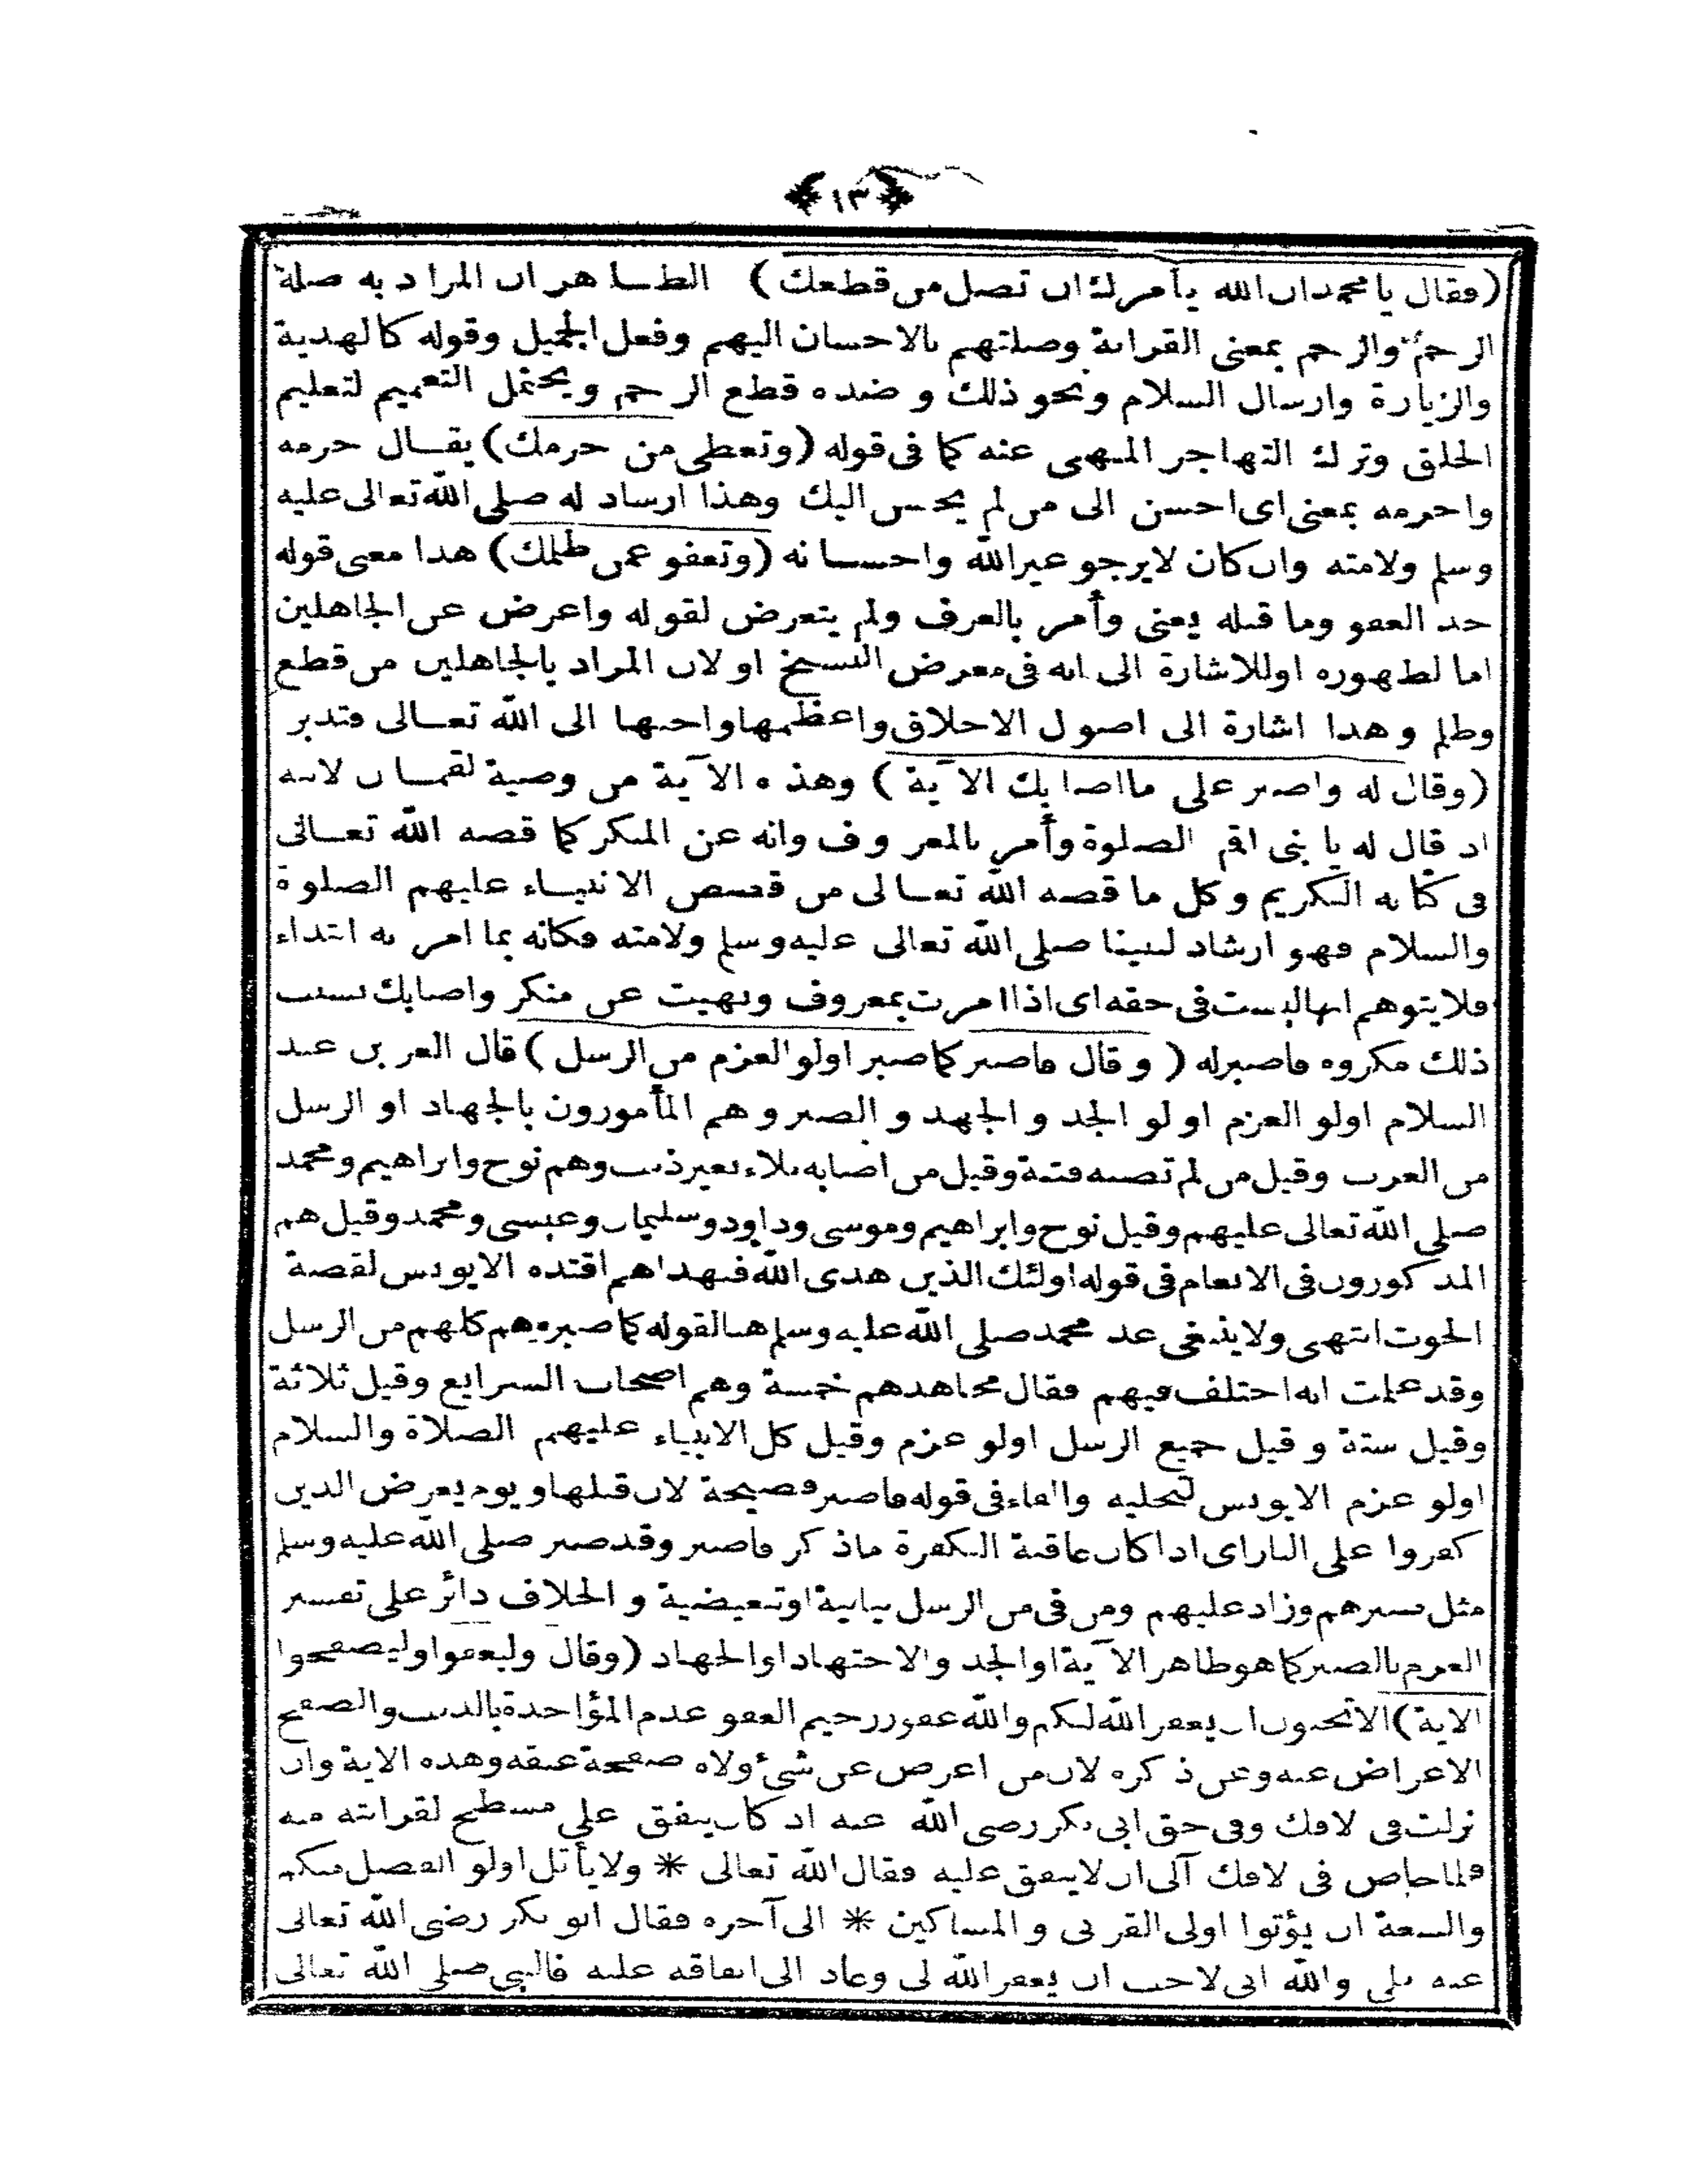 ١٣
(فقال يا محمد ان الله يأمرك ان تصل من قطعك) الظاهر ان المراد به صلة
الرحم والرحم بمعنى القرابة وصلتهم بالاحسان اليهم وفعل الجميل وقوله كالهدية
والزيارة وارسال السلام ونحو ذلك وضده قطع الرحم ويحتمل التعميم لتعليم
الخلق وترك التهاجر المنهى عنه كما فى قوله (وتعطى من حرمك) يقال حرمه
واحرمه بمعنى اى احسن الى من لم يحسن اليك وهذا ارشاد له صلى الله تعالى عليه
وسلم ولامته وان كان لا يرجو غير الله واحسانه (وتعفو عمن ظلمك) هذا معنى قوله
خذ العفو وما قبله يعنى وأمر بالعرف ولم يتعرض لقوله واعرض عن الجاهلين
اما لظهوره او للاشارة الى انه فى معرض النسخ او لان المراد بالجاهلين من قطع
وظلم وهذا اشارة الى اصول الاخلاق واعظمها واحبها الى الله تعالى فتدبر
(وقال له واصبر على ما اصابك الآية) وهذه الآية من وصية لقمان لابنه
اذ قال له يا بنى اقم الصلوة وأمر بالمعروف وانه عن المنكر كما قصه الله تعالى
فى كتابه الكريم وكل ما قصه الله تعالى من قصص الانبياء عليهم الصلوة
والسلام فهو ارشاد لنبينا صلى الله تعالى عليه وسلم ولامته فكأنه بما امر به ابتداء
فلا يتوهم انها ليست فى حقه اى اذا امرت بمعروف ونهيت عن منكر واصابك بسبب
ذلك مكروه فاصبر له (وقال فاصبر كما صبر اولو العزم من الرسل) قال العز بن عبد
السلام اولو العزم اولو الجد والجهد والصبر وهم المأمورون بالجهاد او الرسل
من العرب وقيل من لم تصبه فتنة وقيل من اصابه بلاء بغير ذنب وهم نوح وابراهيم ومحمد
صلى الله تعالى عليهم وقيل نوح وابراهيم وموسى وداود وسليمان وعيسى ومحمد وقيل هم
المذكورون فى الانعام فى قوله اولئك الذين هدى الله فبهداهم اقتده الا يونس لقصة
الحوت انتهى ولا ينبغى عد محمد صلى الله عليه وسلم هنا لقوله كما صبر وهم كلهم من الرسل
وقد علمت انه اختلف فيهم فقال مجاهد هم خمسة وهم اصحاب الشرايع وقيل ثلاثة
وقيل ستة وقيل جميع الرسل اولو عزم وقيل كل الانبياء عليهم الصلاة والسلام
اولو عزم الا يونس لتخليه والفاء فى قوله فاصبر فصيحة لان قبلها ويوم يعرض الذين
كفروا على النار اى اذا كان عاقبة الكفرة ما ذكر فاصبر وقد صبر صلى الله عليه وسلم
مثل صبرهم وزاد عليهم ومن فى من الرسل بيانية او تبعيضية والخلاف دائر على تفسير
العزم بالصبر كما هو ظاهر الآية او الجد والاجتهاد او الجهاد (وقال وليعفوا وليصفحوا
الاية) الا تحبون ان يغفر الله لكم والله غفور رحيم العفو عدم المؤاخذة بالذنب والصفح
الاعراض عنه وعن ذكره لان من اعرض عن شئ ولاه صفحة عنقه وهذه الاية وان
نزلت فى لافك وفى حق ابى بكر رضى الله عنه اذ كان ينفق على مسطح لقرابته منه
فلما خاض فى لافك آلى ان لا ينفق عليه فقال الله تعالى * ولا يأتل اولو الفضل منكم
والسعة ان يؤتوا اولى القربى والمساكين * الى آخره فقال ابو بكر رضى الله تعالى
عنه بلى والله انى لاحب ان يغفر الله لى وعاد الى انفاقه عليه فالنبى صلى الله تعالى